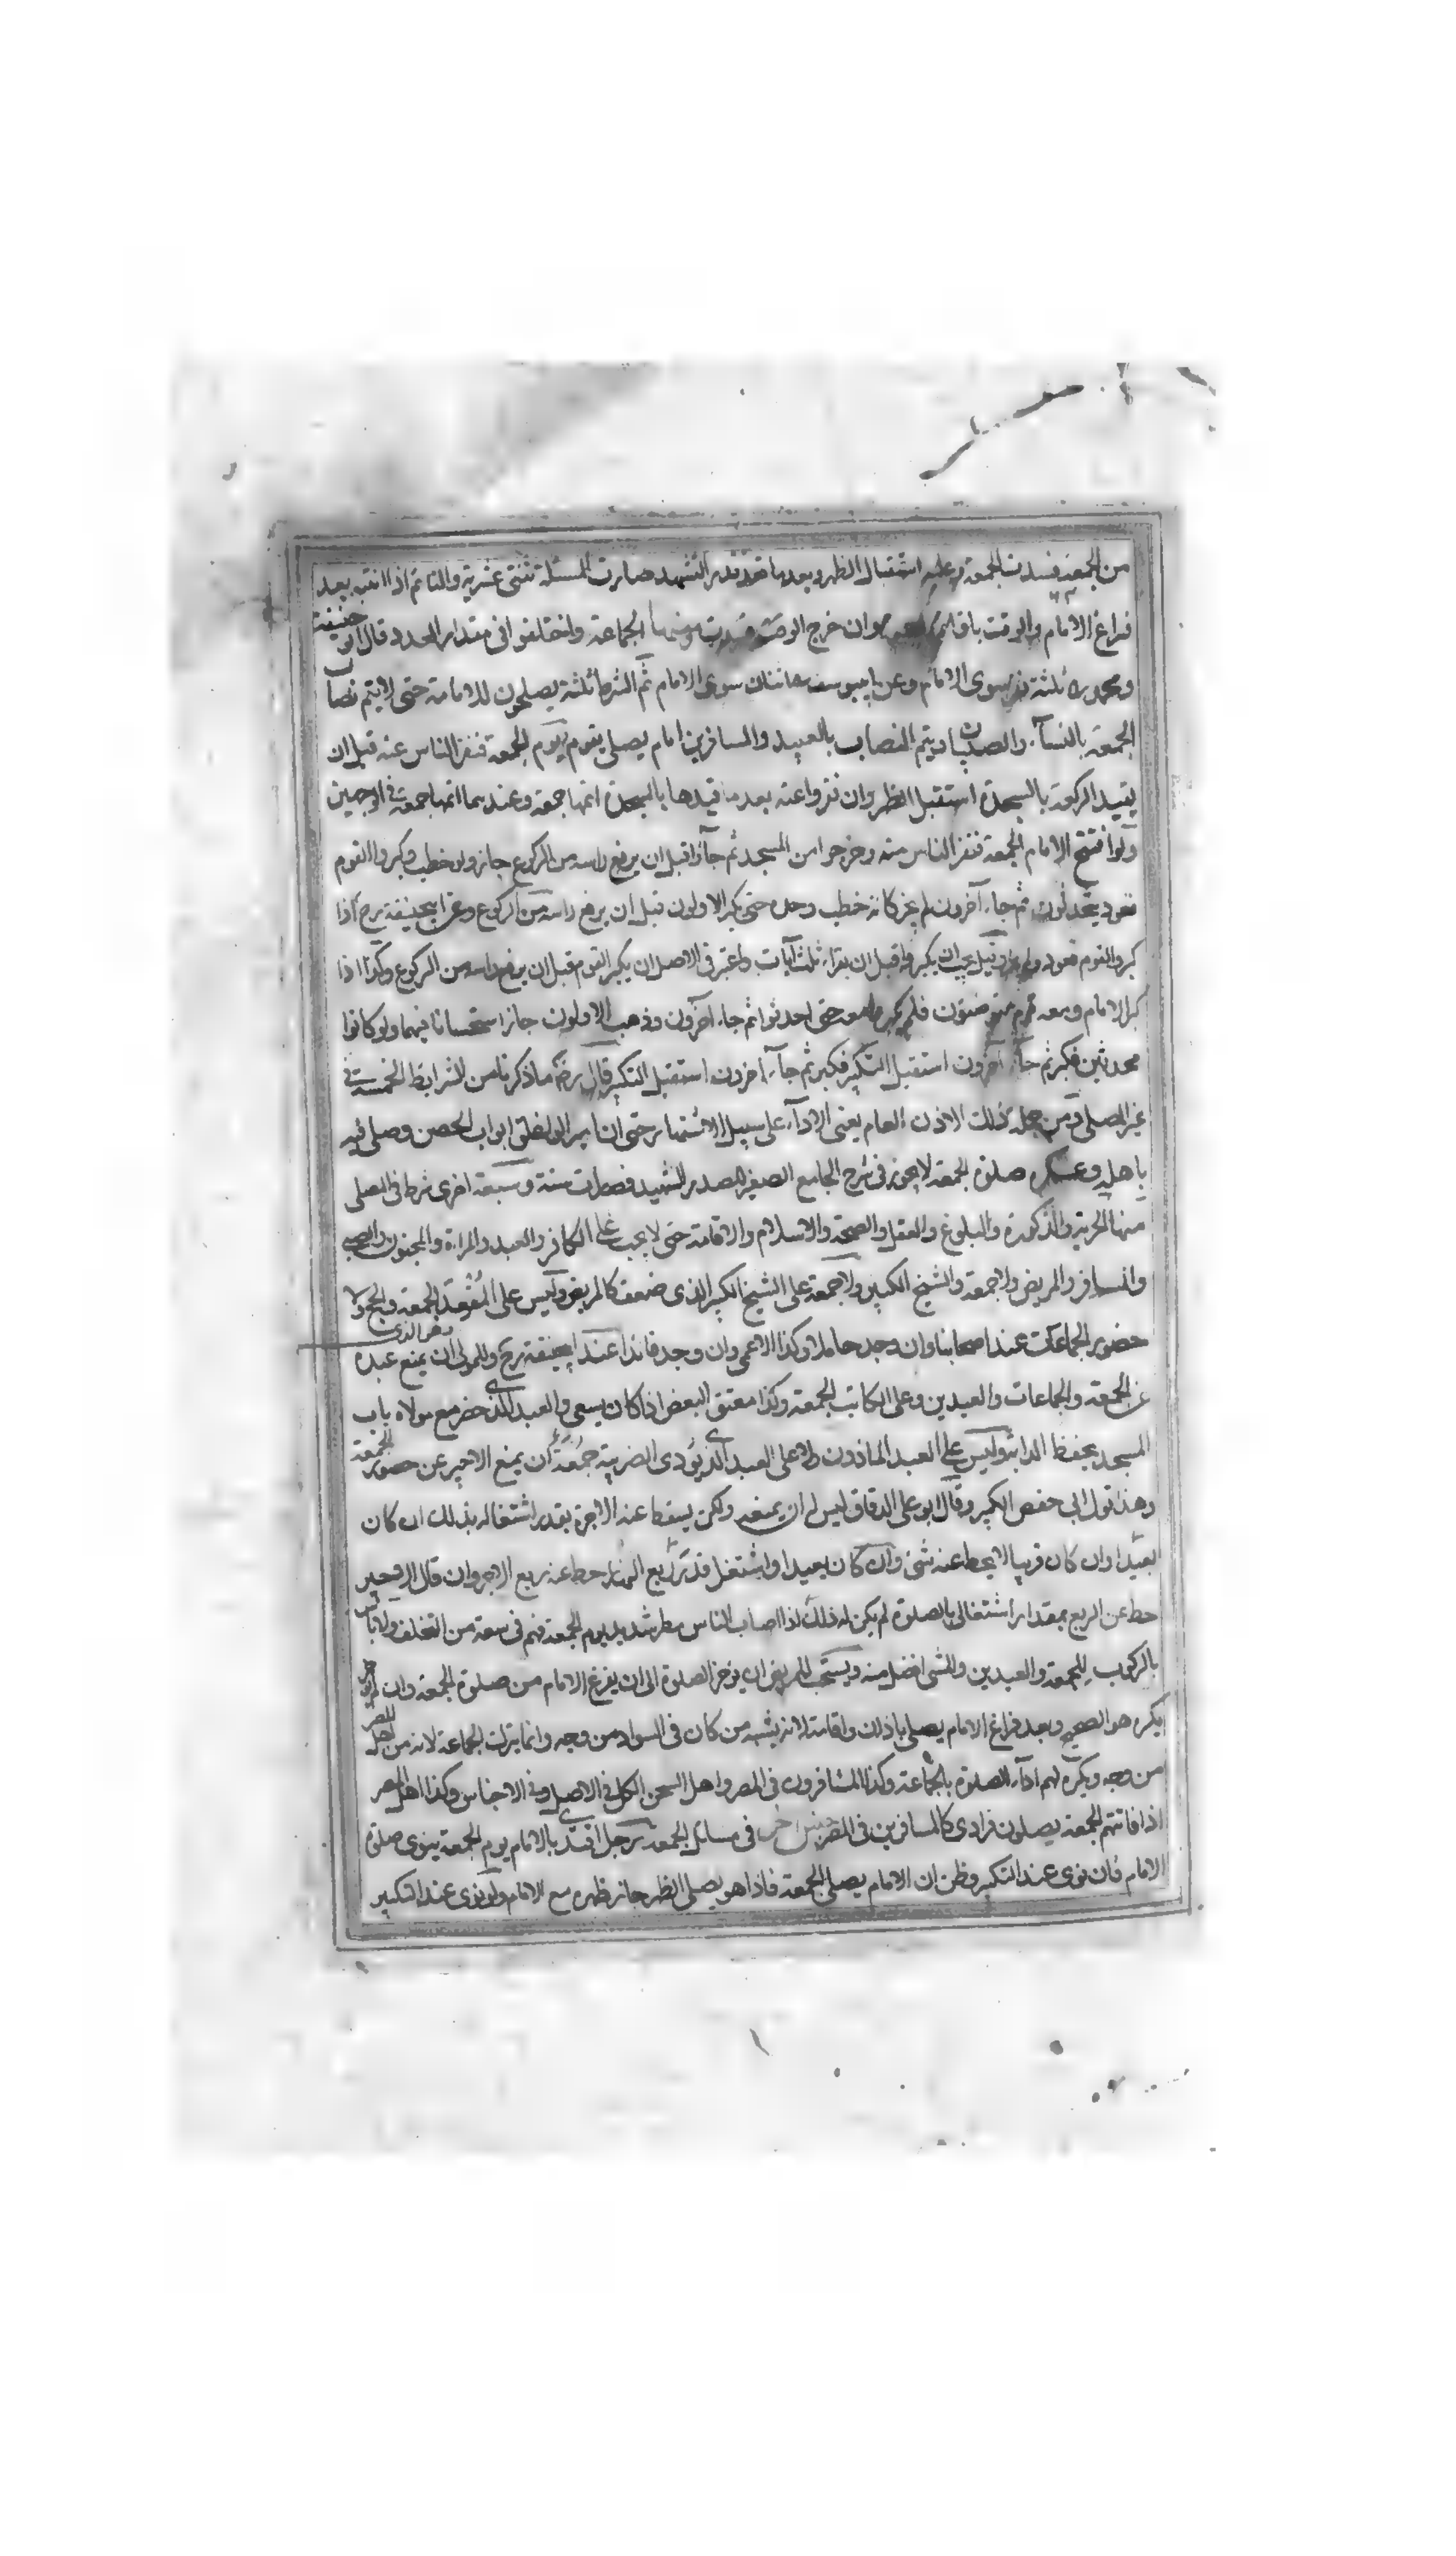 من الجمعة فسدت الجمعة وعليه استقبال الظهر وبعد ما قعد قدر التشهد صارت المسئلة اثنتى عشرية والنائم اذا انتبه بعد
فراغ الامام والوقت باق وان خرج الوقت فسدت ومنها الجماعة واختلفوا فى مقدار العدد قال ابو حنيفة
ومحمد رح ثلثة نفر سوى الامام وعن ابيوسف اثنان سوى الامام ثم الشرط ثلثة يصلحون للامامة حتى لا يتم نصاب
الجمعة بالنسآء والصبيان ويتم النصاب بالعبيد والمسافرين امام يصلى بقوم يوم الجمعة فنفر الناس عنه قبل ان
يقيد الركعة بالسجدة استقبل الظهر وان نفروا عنه بعد ما قيدها بالسجدة اتمها جمعة وعندهما اتمها جمعة فى الوجهين
ولو افتتح الامام الجمعة فنفر الناس منه وخرجوا من المسجد ثم جآؤا قبل ان يرفع راسه من الركوع جاز ولو خطب وكبر والقوم
قعود يتحدثون ثم جاء آخرون لم يجز كانه خطب وحده حتى يكبر الاولون قبل ان يرفع راسه من الركوع وعن ابيحنيفة رح اذا
كبر والقوم قعود وقيل يجب ان يكبروا قبل ان يقراء ثلث آيات واعتبر فى الاصل ان يكبر القوم قبل ان يرفع راسه من الركوع وكذا اذا
كبر الامام ومعه قوم متوضئون فلم يكبروا معه حتى احدثوا ثم جاء آخرون وذهب الاولون جاز استحسانا فيهما ولو كانوا
محدثين فكبر ثم جآء آخرون استقبل التكبير فكبر ثم جآء آخرون استقبل التكبير قال رض ما ذكرنا من الشرايط الخمسة فى
غير المصلى ومن جملة ذلك الاذن العام يعنى الادآء على سبيل الاشتهار حتى ان امير الو اغلق ابواب الحصن وصلى فيه
باهله وعسكره صلوة الجمعة لا يجوز فى شرح الجامع الصغير للصدر الشهيد فصارت ستة وسبعة اخرى شرط فى المصلى
منها الحرية والذكورة والبلوغ والعقل والصحة والاسلام والاقامة حتى لا يجب على الكافر والعبد والمراءة والمجنون والصبى
والمسافر والمريض ولا جمعة والشيخ الكبير ولا جمعة على الشيخ الكبير الذى ضعف كالمريض وليس على المقعد الجمعة والحج ولا
حضور الجماعات عند اصحابنا وان وجد حاملا وكذا الاعمى وان وجد قائدا عند ابيحنيفة رح وللمولى ان يمنع عبده
عن الجمعة والجماعات والعيدين وعلى الكاتب الجمعة وكذا معتق البعض اذا كان يسعى والعبد الذى حضر مع مولاه باب
المسجد يحفظ الدابة وليس على العبد الماذون ولا على العبد الذى يؤدى الضريبة جمعة ان يمنع الاجير عن حضور الجمعة
وهذا قول ابى حفص الكبير وقال ابو على الدقاق ليس له ان يمنعه ولكن يسقط عنه الاجرة بقدر اشتغاله بذلك ان كان
بعيدا وان كان قريبا لا يحط عنه شئ وان كان بعيدا واشتغل قدر ربع النهار حط عنه ربع الاجر وان قال الاجير
حط عن الربع بمقدار اشتغالى بالصلوة لم يكن له ذلك اذا اصاب الناس مطر شديد يوم الجمعة فهم فى سعة من التخلف ولا باس
بالركوب للجمعة والعيدين والمشى افضل منه ويستحب للمريض ان يؤخر الصلوة الى ان يفرغ الامام من صلوة الجمعة وان لم يؤخر
يكره هو الصحيح وبعد فراغ الامام يصلى باذان واقامة لانه يشبه من كان فى السواد من وجه وانما يترك الجماعة لانه من اهل المصر
من وجه ويكره لهم ادآء الصلوة بالجماعة وكذا المسافرون فى المصر واهل السجن الكل فى الاصل وفى الاجناس وكذا اهل المصر
اذا فاتتهم الجمعة يصلون فرادى كالمسافرين فى المصر جنس آخر فى مسائل الجمعة رجل اقتدى بالامام يوم الجمعة ينوى صلوة
الامام فان نوى عند التكبير وظن ان الامام يصلى الجمعة فاذا هو يصلى الظهر جاز ظهره مع الامام ولو نوى عند التكبير